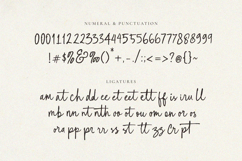 NUMERAL & PUNCTUATION
00112233445566778899
!#$%&‰()*+,-./:;<=>?@{}~
LIGATURES
am at ch dd ee et ett ff is ir u ll
mb nn nt nth oo ot ou om on or os
ora pp pr rr ss st tt zz Cr pt